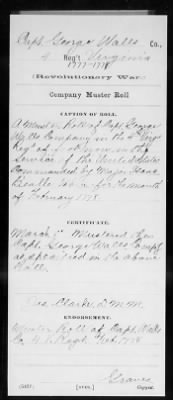 Capt. George Walls Co.,
4 Reg't Virginia
1777-1778
(Revolutionary War.)
Company Muster Roll
CAPTION OF ROLL.
A Muster Roll of Capt. George
Walls Company in the 4th Virga
Regt of foot now in the
Service of the United States
Commanded by Major Isaac
Beall for the month
of February 1778.
CERTIFICATE.
March Mustered then
Capt. George Walls Compy
as specified in the above
Roll.
Clarke, D. M. M.
ENDORSEMENT.
Muster Roll of Capt. Walls
Co. 4 V. Regt. Feb. 1778
Graves
Copyist.